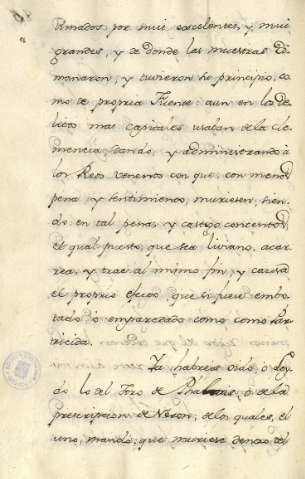 timados por mui excelentes, y mui
grandes, y de donde las nuestras
manaron, y tuvieron su principio, co-
mo de propria Fuente: aun en los de-
litos mas capitales usaban de la cle-
mencia, dando, y administrando à
los Reos veneno con que, con menos
pena, y sentimiento, muriesen, sien-
do en tal pena, y castigo
el qual puesto, que sea liviano, acar-
rea, y trae al mismo fin, y causa
el proprio efecto, que si fuese embo-
tado, ò emparedado como
ricida.
Ya habreis oido, ò ley-
do lo del Toro de Phalaris, ò de la
prescripcion de Neron, de los quales, el
uno, mandò, que muriese dentro del